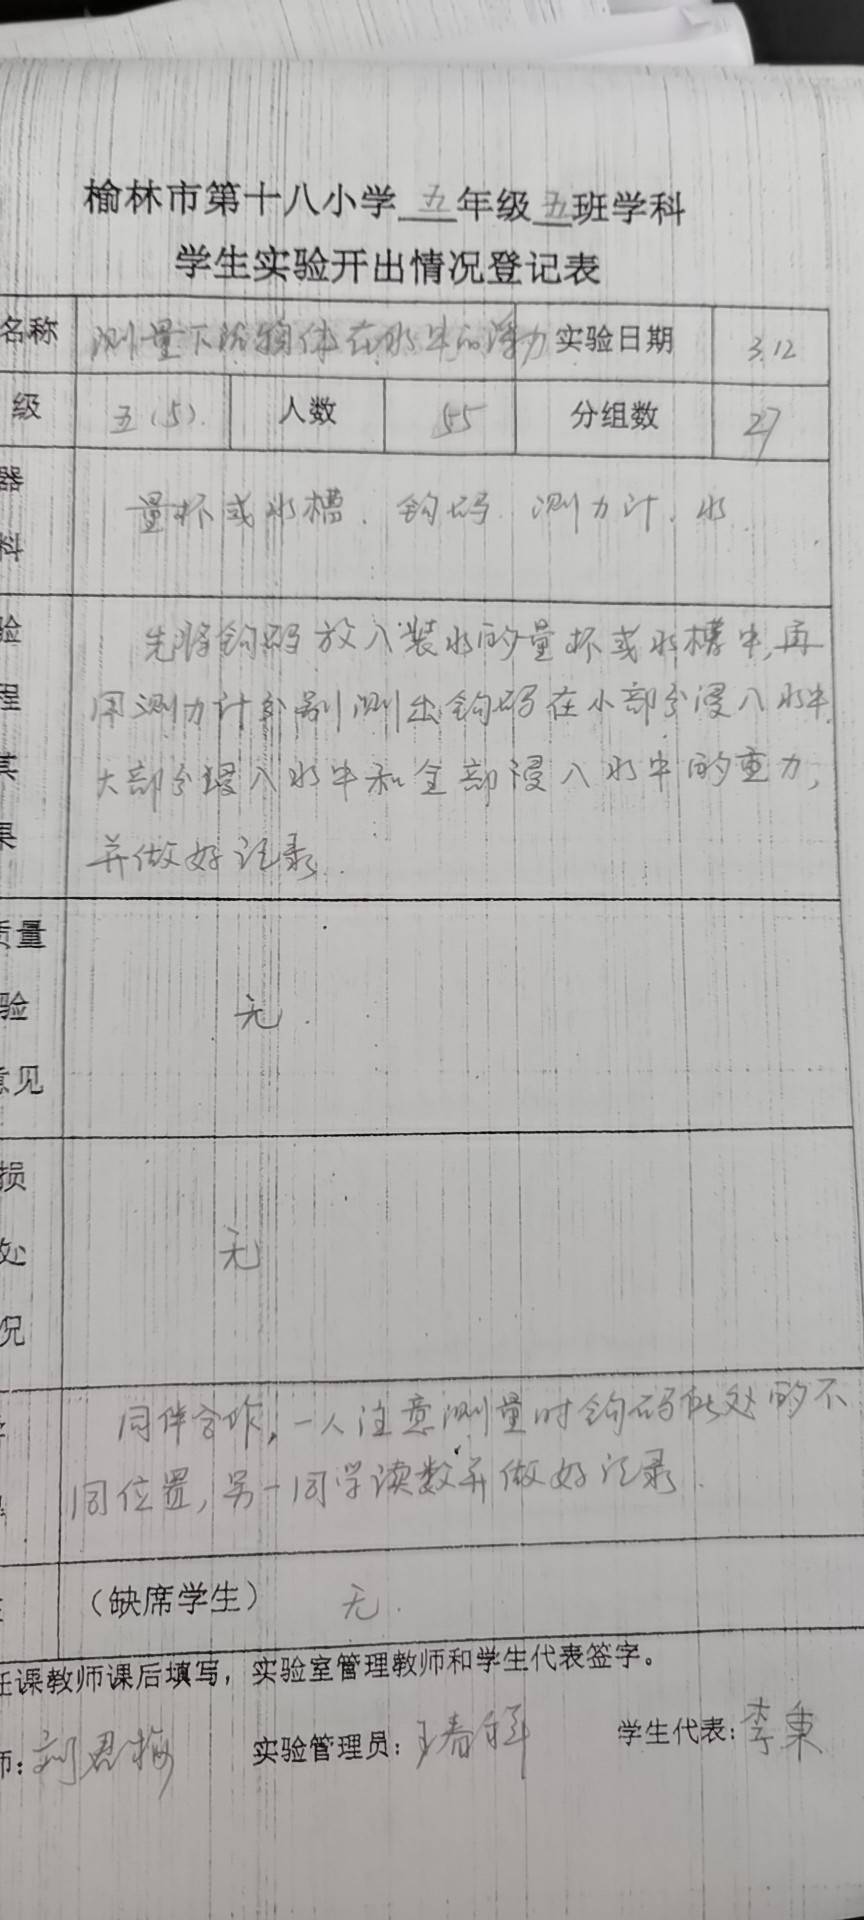 榆林市第十八小学五年级五班学科
学生实验开出情况登记表
名称 测量下沉物体在水中的浮力 实验日期 3.12
级 五(5). 人数 55 分组数 27
器
料
量杯或水槽、钩码、测力计、水
验
程
其
果
先将钩码放入装水的量杯或水槽中,再
用测力计分别测出钩码在小部分浸入水中
大部分浸入水中和全部浸入水中的重力,
并做好记录.
质量
验
意见
无.
损
处
况
无
同伴合作,一人注意测量时钩码所处的不
同位置,另一同学读数并做好记录.
(缺席学生) 无.
任课教师课后填写,实验室管理教师和学生代表签字。
师:刘君梅 实验管理员:王春 学生代表:李秉